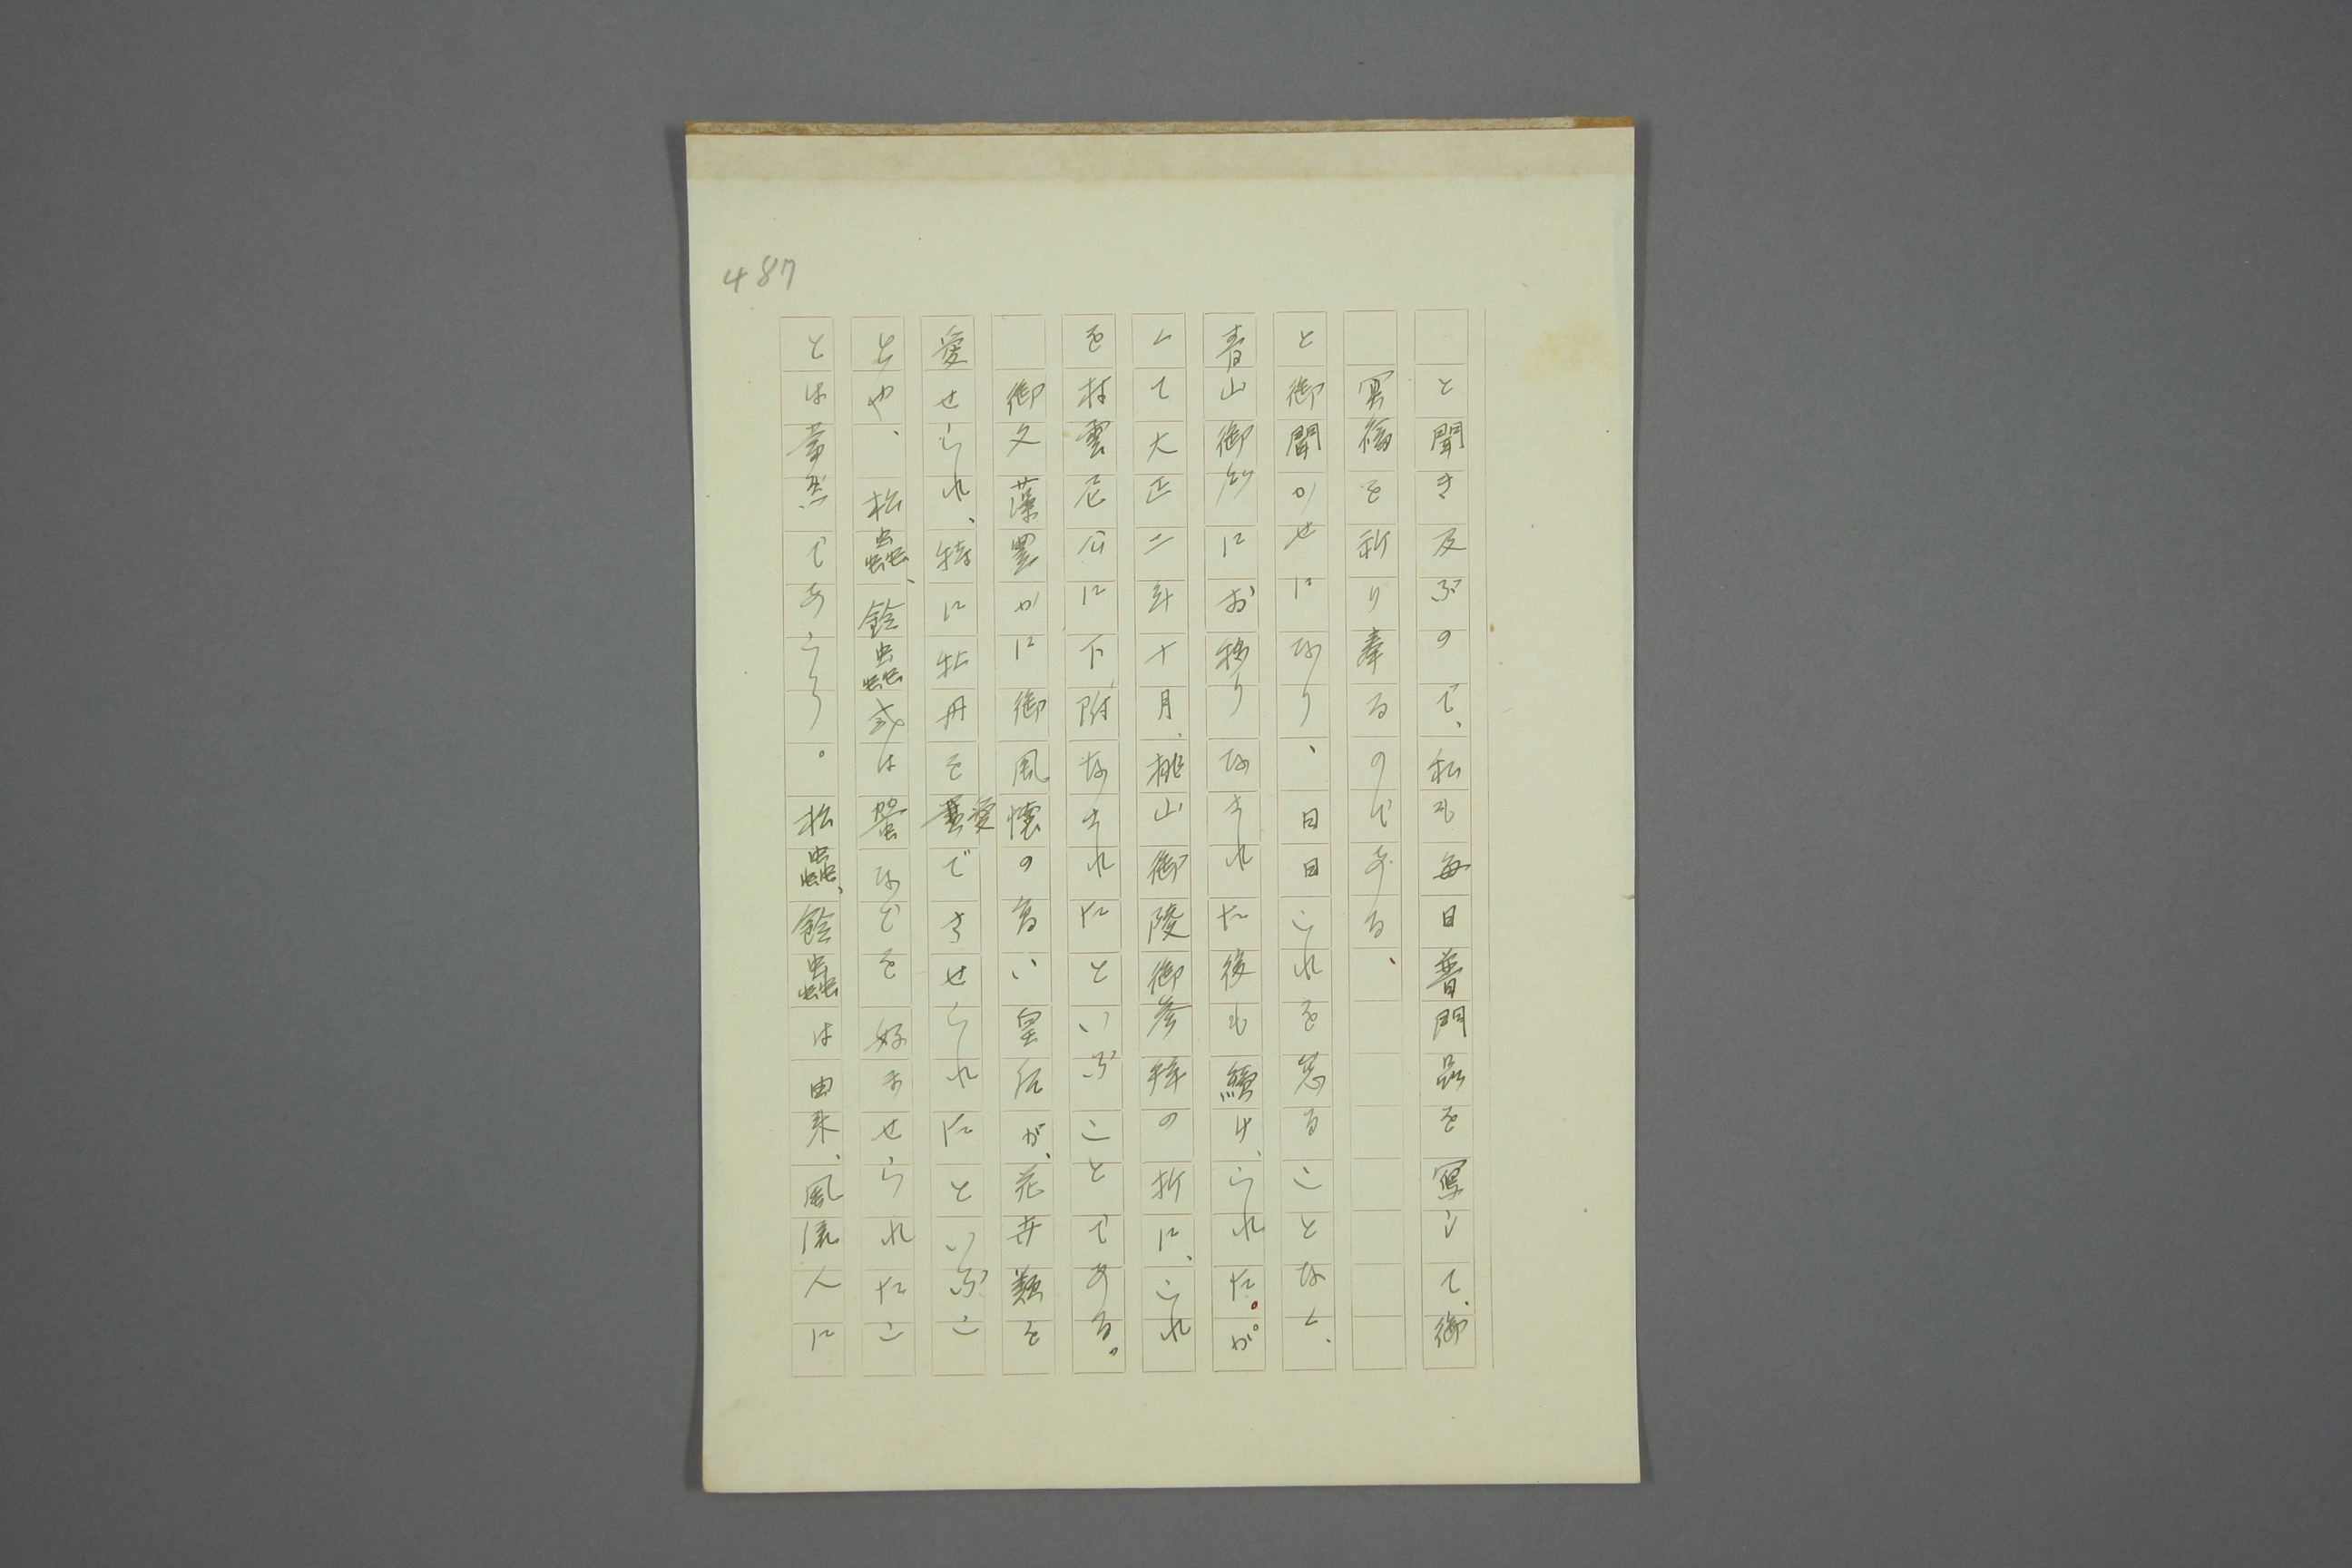 487
と聞き及ぶので、私も毎日普門品を写して、御
冥福を祈り奉るのである、
と御聞かせになり、日日これを怠ることなく、
青山御所にお移りなされた後も續けられた。が
して大正二年十月、桃山御陵御参拝の折に、これ
を村雲尼公に下附なされたといふことである。
御文藻豊かに御風懐の高い皇后が、花卉類を
愛せられ、特に牡丹を愛でさせられたといふこ
とや、松蟲、鈴蟲或は螢などを好ませられたこ
とは著然であらう。松蟲、鈴蟲は由来、風流人に